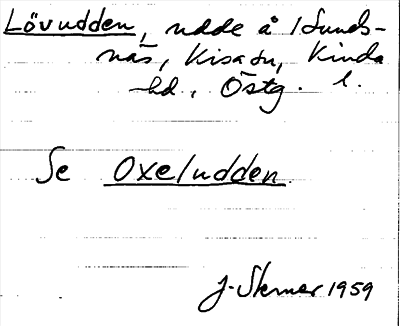 Lövudden, udde å /Sunds-
näs, Kisa sn, Kinda
hd., Östg. l.
Se Oxeludden.
J. Sterner 1959